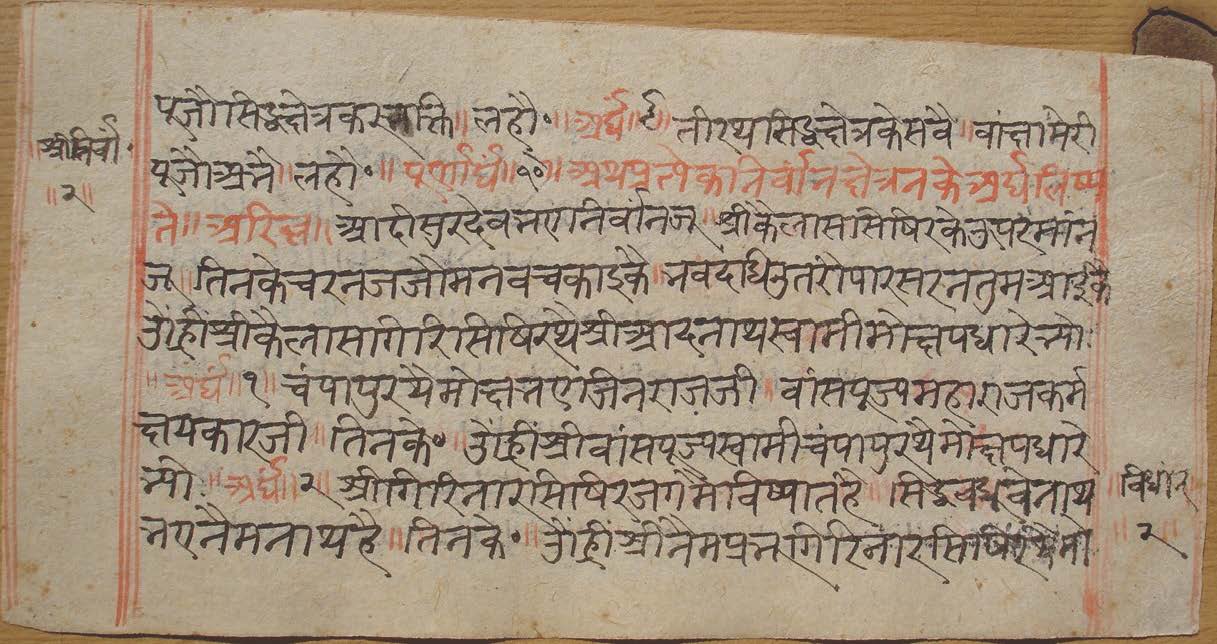 पूजौ सिद्धक्षेत्र कर भक्ति॥ लहौ॰॥ अर्घ॥ ९ तीरथ सिद्धक्षेत्र के सवै॥ वांक्षा मेरी
श्रीनिर्वा॰
॥२॥
पूजौ अवै॥ लहौ॰॥ पूर्णार्घं॥ १०॥ अथ प्रत्येका निर्वान क्षेत्रन के अर्घ लिष्य
ते॥ अरिल्ल॥ आदीसुर देव भए निर्वान जू॥ श्री कैलास सिषिर के उपर मान
जू॥ तिनके चरन जजौ मन वच काइकै॥ भवदधि उतरो पार सरन तुम आइकै
उों ह्रीं श्री कैलासगिरि सिषिर थै श्री आदनाथ स्वामी मोक्ष पधारे भ्यो
॥अर्घ॥ १॥ चंपापुर थै मोक्ष भए जिनराज जी॥ वांसपूज्य महाराज कर्म
क्षय कार जी॥ तिनके॰॥ उों ह्रीं श्री वांसपूज्य स्वामी चंपापुर थै मोक्ष पधारे
भ्यो॥ अर्घ॥ २ श्री गिरिनार सिषिर जग मै विष्यात है॥ सिद्ध वधू के नाथ
भए नैमनाथ है॥ तिनके॰ उों ह्रीं श्री नैम प्रभ गिरिनार सिषिर थै मो
विधान
२